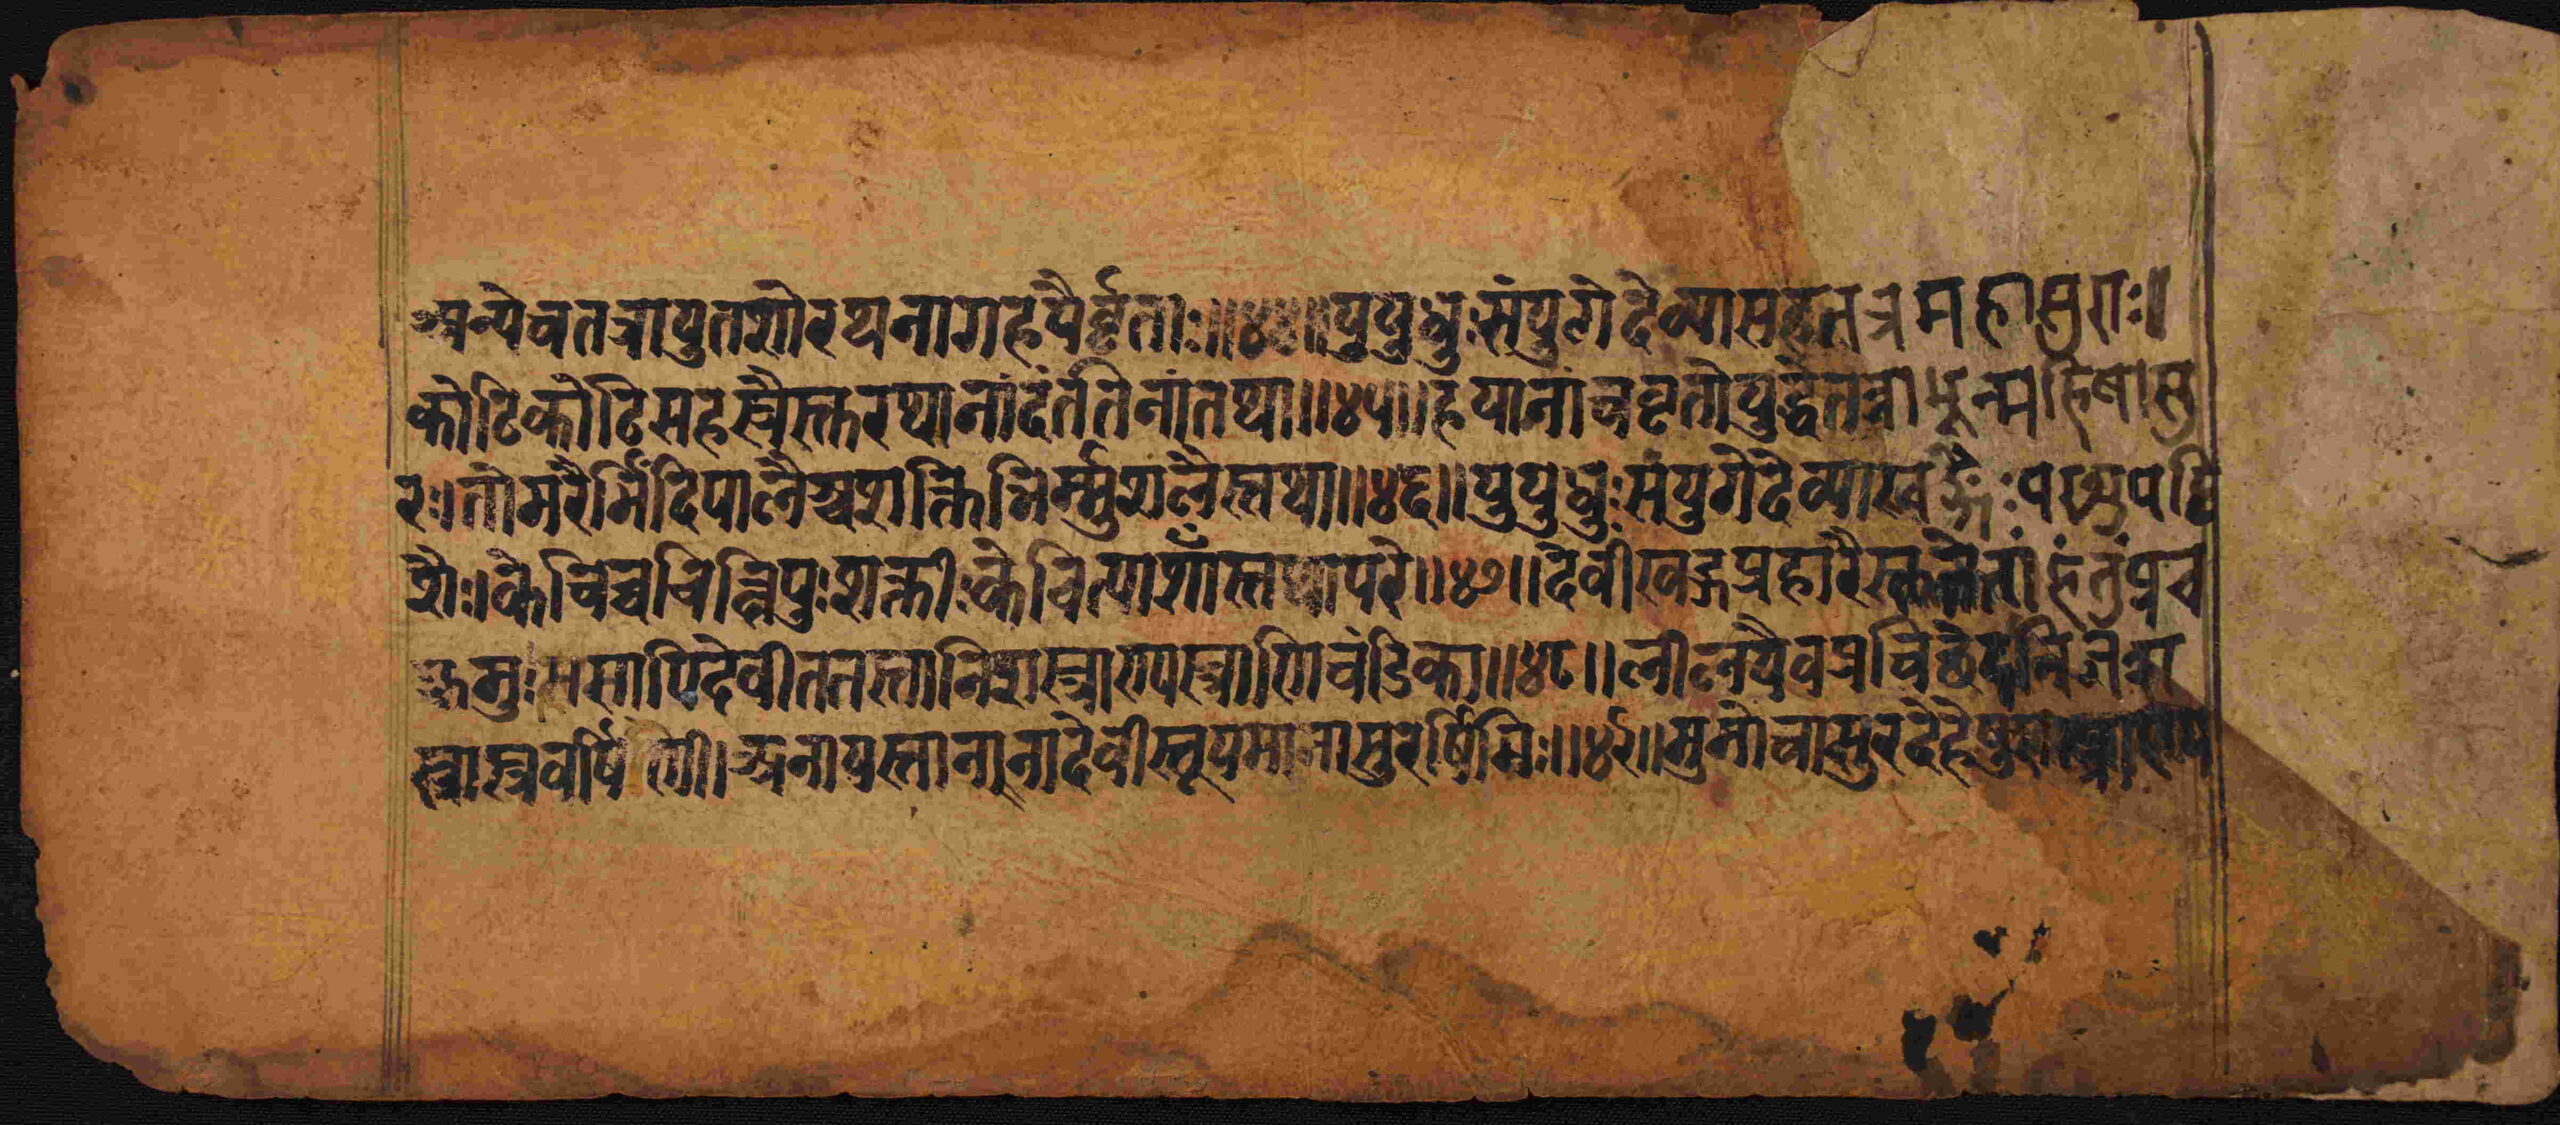 अन्येचतत्रायुतशोरथनागहयैर्वृताः॥४४॥युयुधुःसंयुगेदेव्यासहतत्रमहासुराः॥
कोटिकोटिसहस्रैस्तुरथानांदंतिनांतथा॥४५॥हयानांचवृतोयुद्धेतत्राभून्महिषासु
रः।तोमरैर्भिंदिपालैश्चशक्तिभिर्म्मुशलैस्तथा॥४६॥युयुधुःसंयुगेदेव्याखड्गैःपरशुपट्टि
शैः।केचिच्चचिक्षिपुःशक्तीःकेचित्पाशाँस्तथापरे॥४७॥देवींखड्गप्रहारैस्तुतेतांहंतुंप्रच
क्रमुःससापिदेवीततस्तानिशस्त्राण्यस्त्राणिचंडिका॥४८॥लीलयैवप्रचिच्छेदनिजश
स्त्रास्त्रवर्षिणी।अनायस्ताननादेवीस्तूयमानासुरर्षिभिः॥४९॥मुमोचासुरदेहेषुशस्त्राण्य